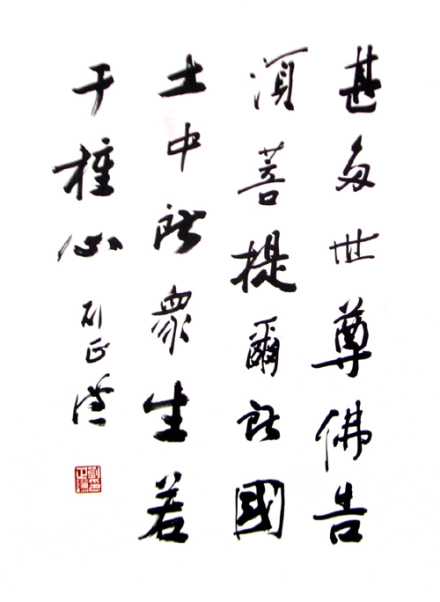 甚多世尊佛告
湏菩提爾所國
土中所衆生若
干種心
刘正